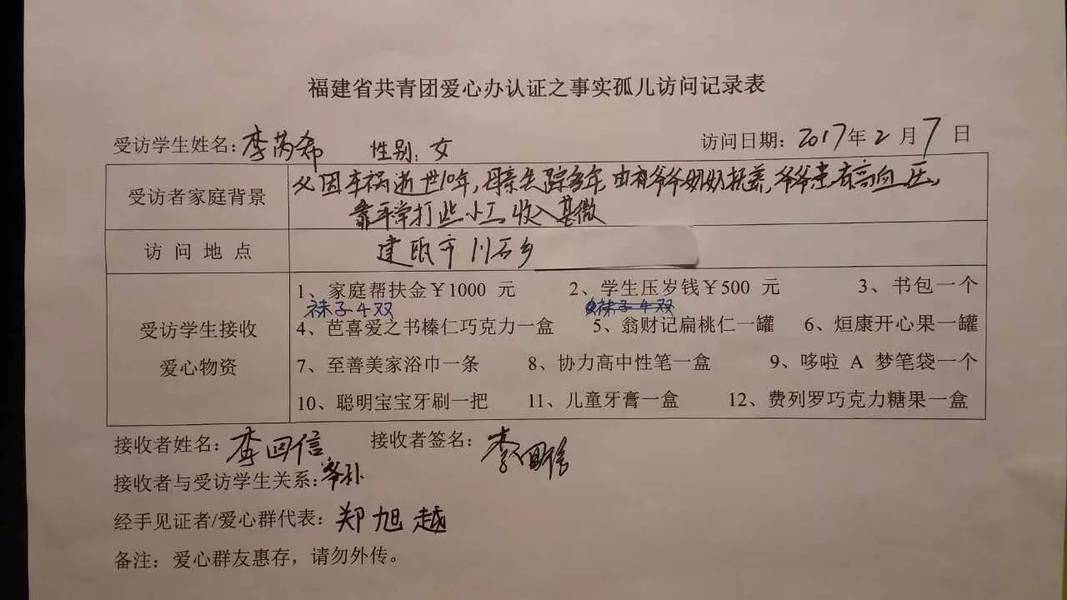 福建省共青团爱心办认证之事实孤儿访问记录表
受访学生姓名：李芮希 性别：女 访问日期：2017年2月7日
受访者家庭背景 父因车祸逝世10年，母亲失踪多年，由有爷爷奶奶抚养，爷爷患有高血压，
靠平常打些小工，收入甚微
访问地点 建瓯市川石乡
受访学生接收
爱心物资
1、家庭帮扶金￥1000 元 2、学生压岁钱￥500 元 3、书包一个
袜子4双 袜子4双
4、芭喜爱之书榛仁巧克力一盒 5、翁财记扁桃仁一罐 6、烜康开心果一罐
7、至善美家浴巾一条 8、协力高中性笔一盒 9、哆啦 A 梦笔袋一个
10、聪明宝宝牙刷一把 11、儿童牙膏一盒 12、费列罗巧克力糖果一盒
接收者姓名：李回信 接收者签名：李回信
接收者与受访学生关系：爷孙
经手见证者/爱心群代表：郑旭越
备注：爱心群友惠存，请勿外传。